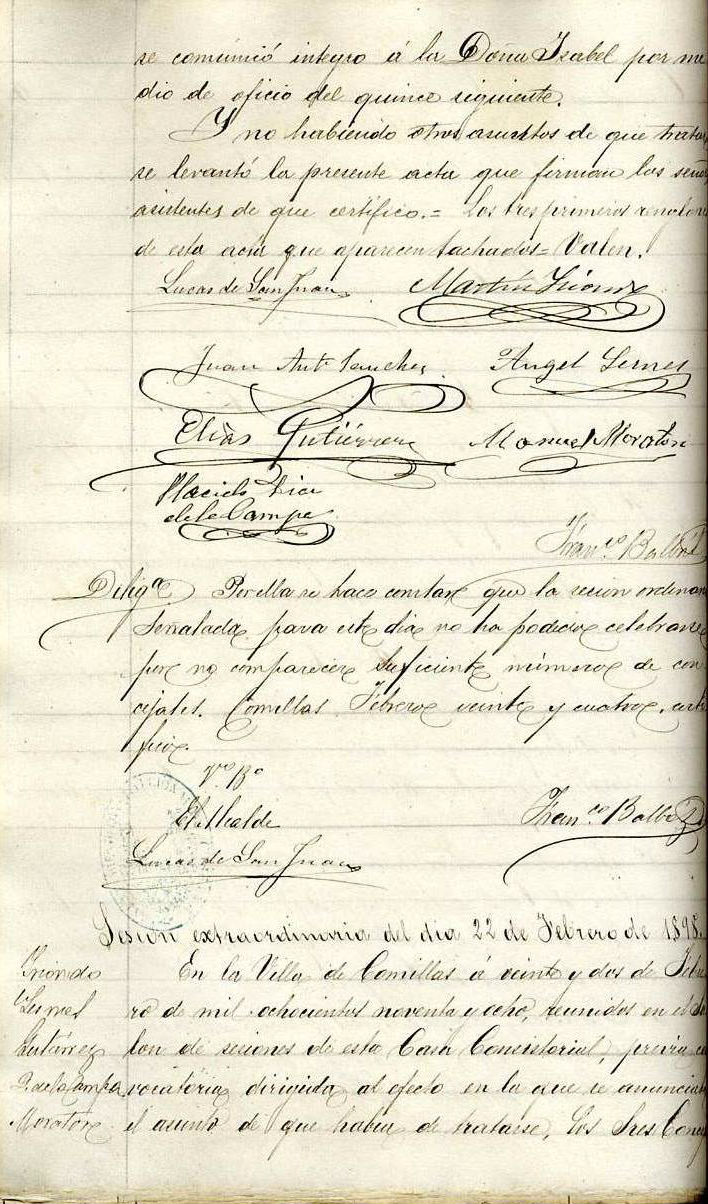 se comunicó integro á la Doña Isabel por me
dio de oficio del quince siguiente.
Y no habiendo otros asuntos de que tratar
se levantó la presente acta que firman los señor
asistentes de que certifico.= Los tres primeros renglon
de esta acta que aparecen tachados= Valen.
Lucas de San Juan Martín
Juan Antº Sanchez Angel
Elías Gutiérrez Manuel Moratón
Placido
de la Campa
Franco Balb
Diligª Por ella se hace constar que la sesion ordenar
señalada para este dia no ha podido celebrarse
por no comparecer suficiente número de con
cejales. Comillas Febrero veinte y cuatro, certi
fico.
Vº Bº
El Alcalde Franco Balb
Lucas de San Juan
Sesión extraordinaria del dia 22 de Febrero de 1898.
En la Villa de Comillas á veinte y dos de Febre
ro de mil ochocientos noventa y ocho, reunidos en el Sa
Gutiérrez lon de sesiones de esta Casa Consistorial, previa co
P. de la Campa vocatoria dirigida al efecto en la que se anunciab
Moratón el asunto de que habia de tratarse, los Sres Concej